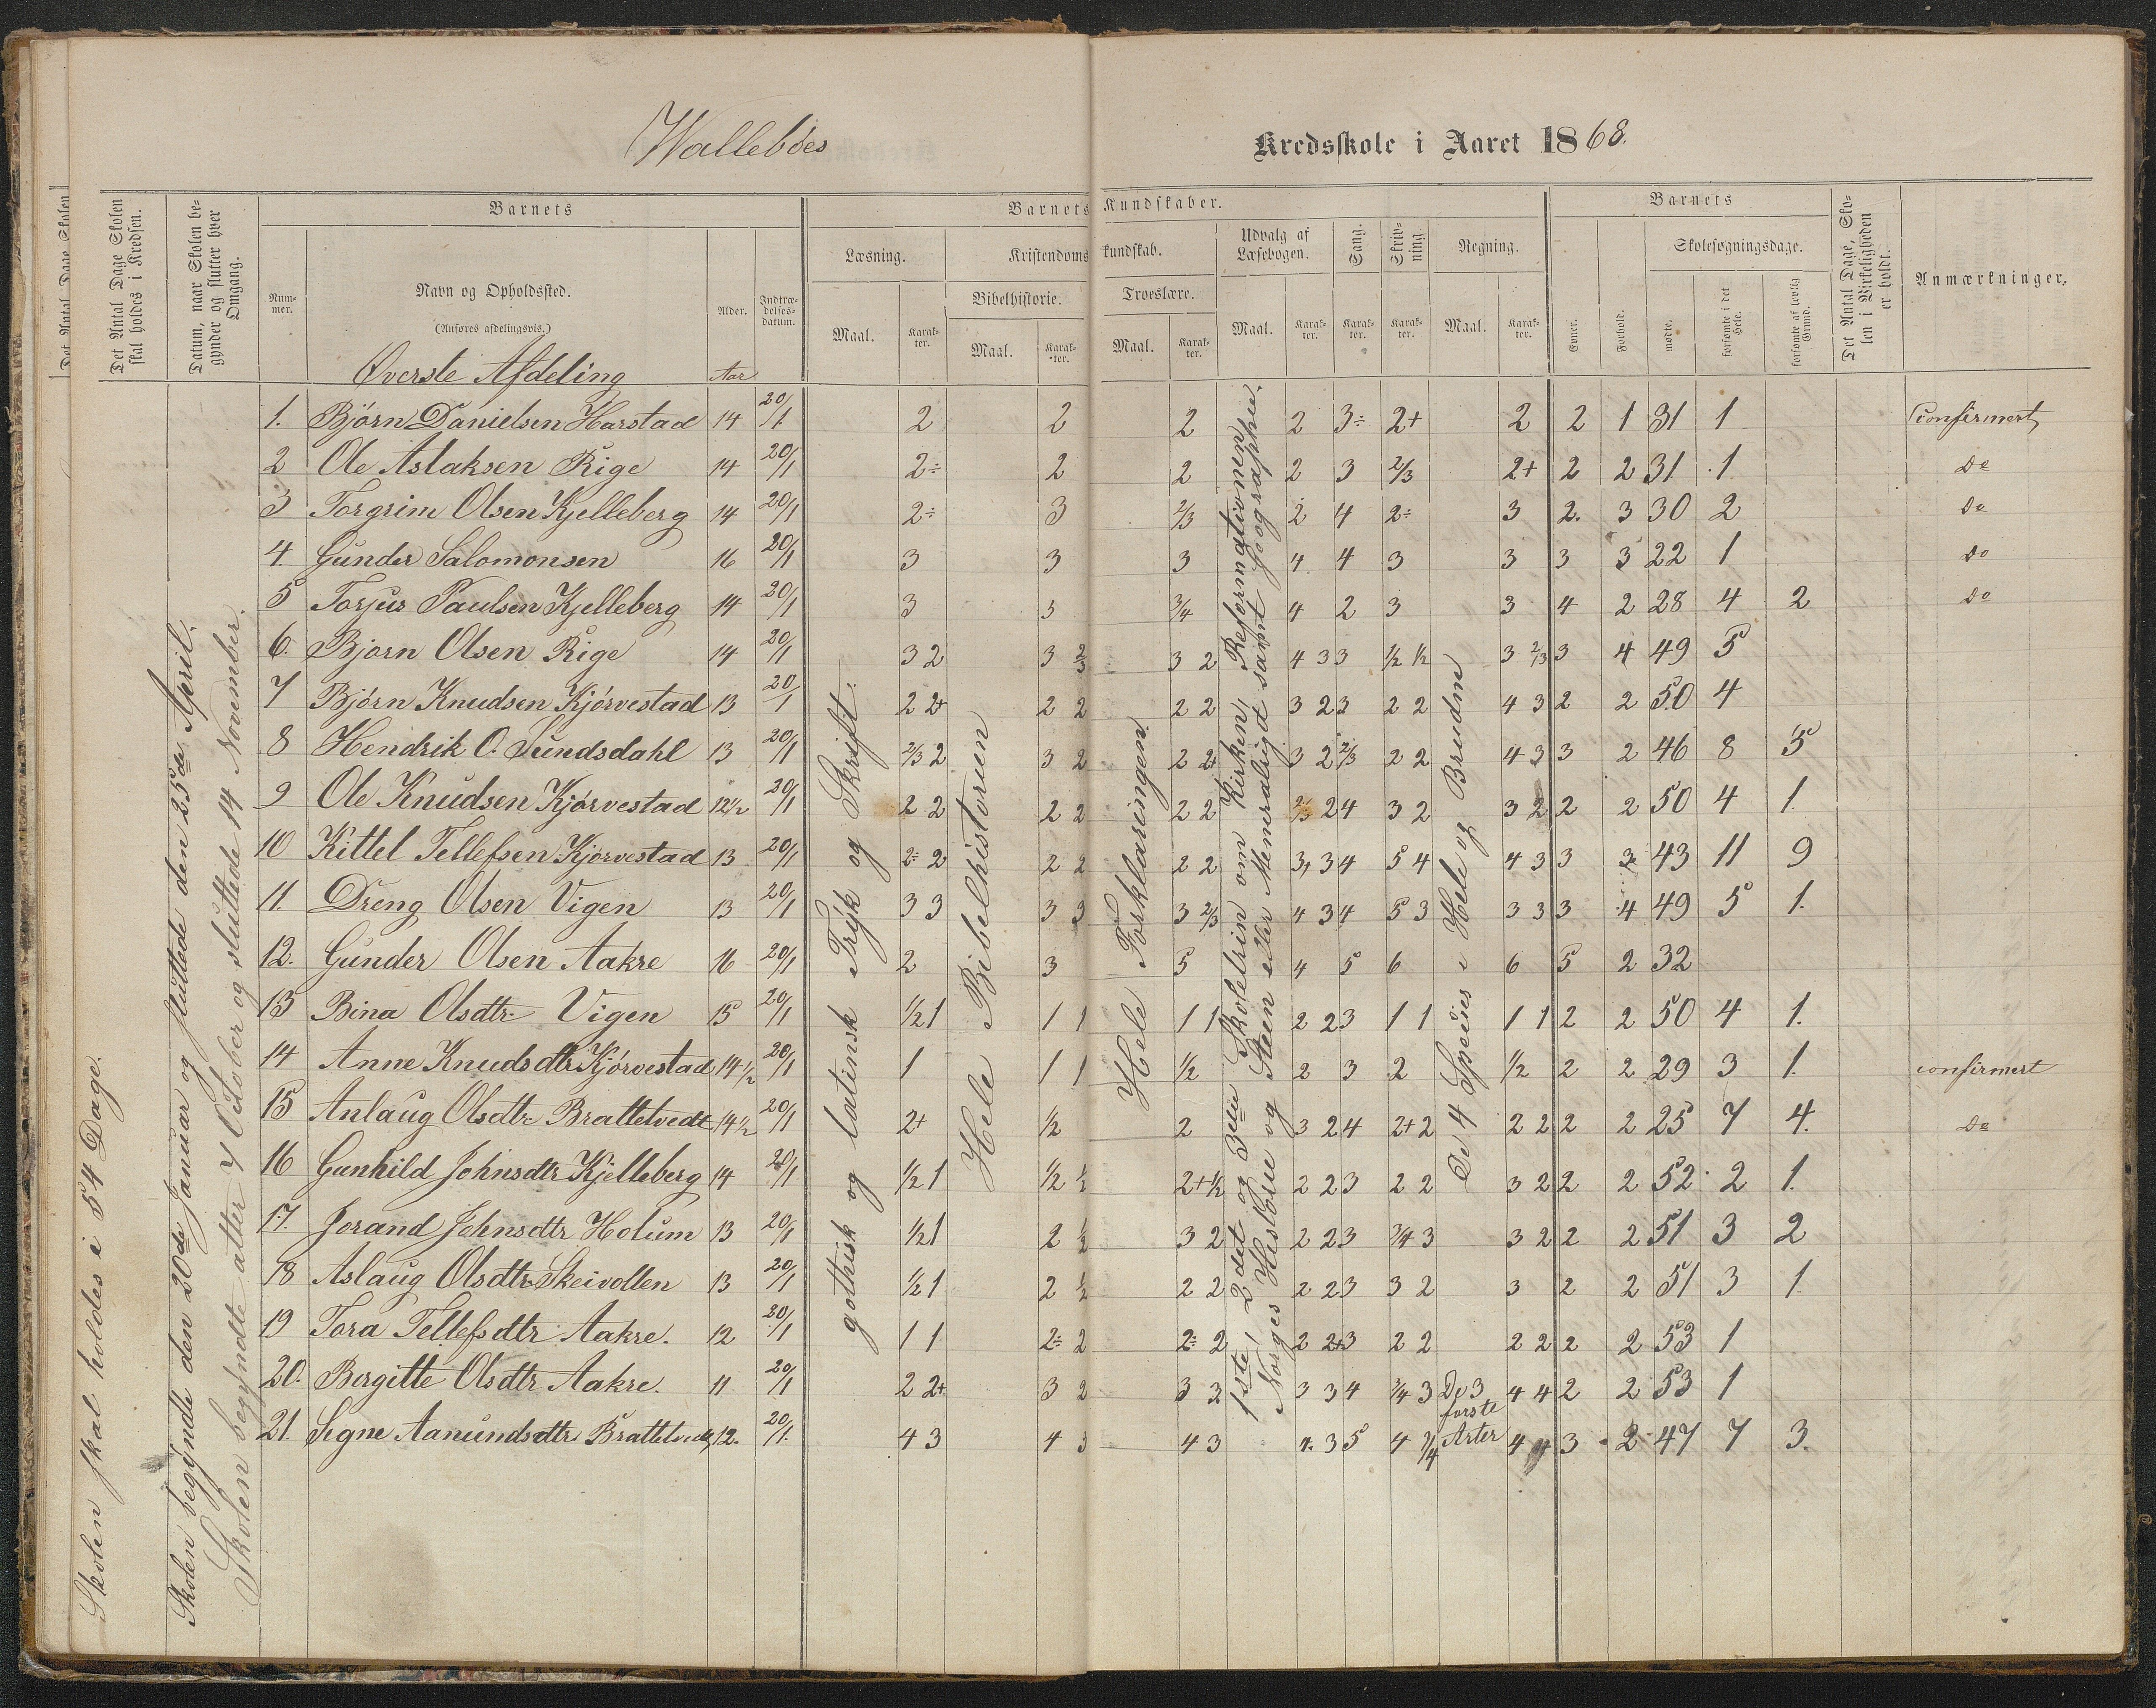 Wallebøes
Kredsskole i Aaret 1868.
Det Antal Dage Skolen skal holdes i Kredsen.
Datum, naar Skolen begynder og slutter hver Omgang.
Barnets
Num-mer.
Navn og Opholdssted.
(Anføres afdelingsvis.)
Alder.
Indtræ-delses-datum.
Barnets Kundskaber.
Læsning.
Kristendomskundskab.
Bibelhistorie.
Troeslære.
Udvalg af Læsebogen.
Sang.
Skriv-ning.
Regning.
Maal. Karak-ter. Maal. Karak-ter. Maal. Karak-ter. Maal. Karak-ter. Karak-ter. Karak-ter. Maal. Karak-ter.
Barnets
Evner. Forhold. Skolesøgningsdage.
mødte. forsømte i det Hele. forsømte af lovlig Grund.
Det Antal Dage, Skolen i Virkeligheden er holdt.
Anmærkninger.
Skolen skal holdes i 54 Dage.
Skolen begyndte den 20de Januar og sluttede den 25de April.
Skolen begyndte atter 7 October og sluttede 14 November.
gothisk og latinsk Tryk og Skrift.
Hele Bibelhistorien
Hele Forklaringen.
1ste, 2det og 3die Skoletrin om Kirken, Reformationen,
Norges Historie og Steen eller Memeraligt samt Geographie.
De 4 Species i Hele og Brudne
Øverste Afdeling Aar
1. Bjørn Danielsen Harstad 14 20/1. 2 2 2 2 3÷ 2+ 2 2 1 31 1 Confirmert
2 Ole Aslaksen Rige 14 20/1 2÷ 2 2 2 3 2/3 2+ 2 2 31. 1 do
3 Torgrim Olsen Kjelleberg 14 20/1 2÷ 3 2/3 2 4 2÷ 3 2. 3 30 2 do
4. Gunder Salomonsen 16 20/1 3 3 3 4 4 3 3 3 3 22 1 do
5 Torjus Paulsen Kjelleberg 14 20/1 3 3 3/4 4 2 3 3 4 2 28 4 2 do
6. Bjørn Olsen Rige 14 20/1 3 2 3 2/3 3 2 4 3 3 1/2 1/2 3 2/3 3 4 49 5
7 Bjørn Knudsen Kjörvestad 13 20/1 2 2+ 2 2 2 2 3 2 3 2 2 4 3 2 2 50 4
8 Hendrik O. Sundsdahl 13 20/1 2/3 2 3 2 2 2+ 3 2 2/3 2 2 4 3 3 2 46 8 5
9 Ole Knudsen Kjörvestad 12 1/2 20/1 2 2 2 2 2 2 2/3 2 4 3 2 3 2 2 2 50 4 1.
10 Kittel Tellefsen Kjörvestad 13 20/1 2÷ 2 2 2 2 2 3+ 3 4 5 4 4 3 3 3 43 11 9
11. Dreng Olsen Vigen 13 20/1 3 3 3 3 3 2/3 4 3 4 5 3 3 3 3 4 49 5 1.
12. Gunder Olsen Aakre 16 20/1 2 3 5 4 5 6 6 5 2 32
13 Bina Olsdtr Vigen 15 20/1 1/2 1 1 1 1 1 2 2 3 1 1 1 1 2 2 50 4 1.
14 Anne Knudsdtr Kjörvestad 14 1/2 20/1 1 1 1 1/2 2 3 2 1/2 2 2 29 3 1. confirmert
15 Anlaug Olsdtr Brattetvedt 14 1/2 20/1 2+ 1/2 2 3 2 4 2+ 2 2 2 2 2 25 7 4. do
16 Gunhild Johnsdtr Kjelleberg 14 20/1 1/2 1 1/2 1/2 2+ 1/2 2 2 3 2 2 3 2 2 2 52 2 1.
17. Jorand Johnsdtr Holum 13 20/1 1/2 1 2 1/2 3 2 2 2 3 3/4 3 3 2 2 2 51 3 2
18 Aslaug Olsdtr Skeivollen 13 20/1 1/2 1 2 1/2 2 2 2 2 3 3 2 3 2 2 51 3 1
19 Tora Tellefsdtr Aakre. 12 20/1 1 1 2÷ 2 2÷ 2 2 2+ 3 2 2 2 2 2 2 53 1
20. Bergitte Olsdtr Aakre. 11 20/1 2 2+ 3 2 3 2 3 3 4 3/4 3 De 3 4 4 2 2 53 1
første
21. Segne Aanundsdtr Brattetvedt 12. 20/1. 4 3 4 3 4 3 4. 3 5 4 3/4 Arter 4 4 3 2 47 7 3.